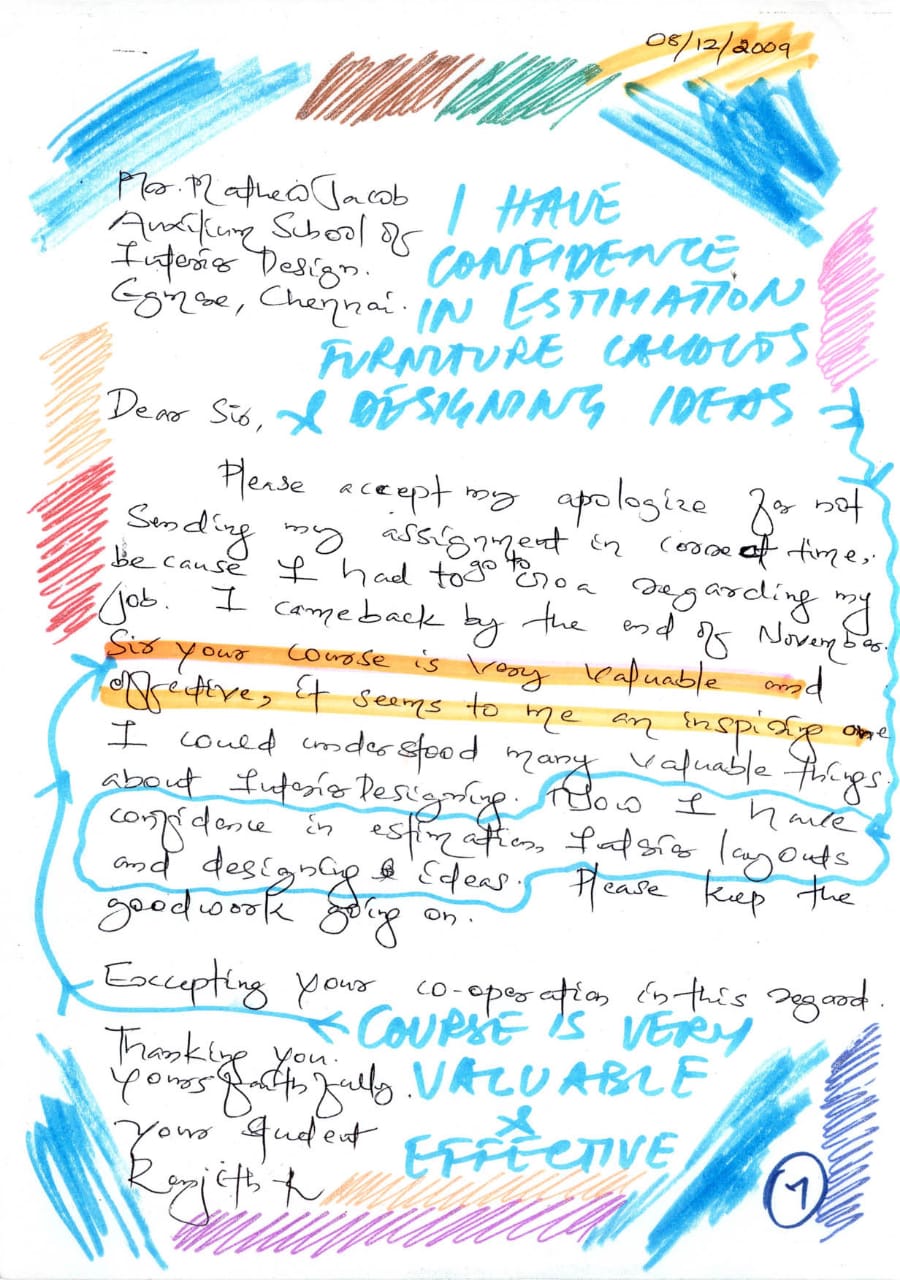 08/12/2009
Mr. Mathew Jacob
Auxilium School of
Interior Design.
Egmore, Chennai.
I HAVE
CONFIDENCE
IN ESTIMATION
FURNITURE LAYOUTS
& DESIGNING IDEAS
Dear Sir,
Please accept my apologize for not
Sending my assignment in correct time,
because I had to go to Goa regarding my
job. I cameback by the end of November.
Sir your course is very valuable and
effective, it seems to me an inspiring one
I could understood many valuable things
about Interior Designing. Now I have
confidence in estimation, Interior layouts
and designing & ideas. Please keep the
goodwork going on.
Excepting your co-operation in this regard.
Thanking you.
Yours faithfully.
Your Student
Renjith K
COURSE IS VERY
VALUABLE
&
EFFECTIVE
1